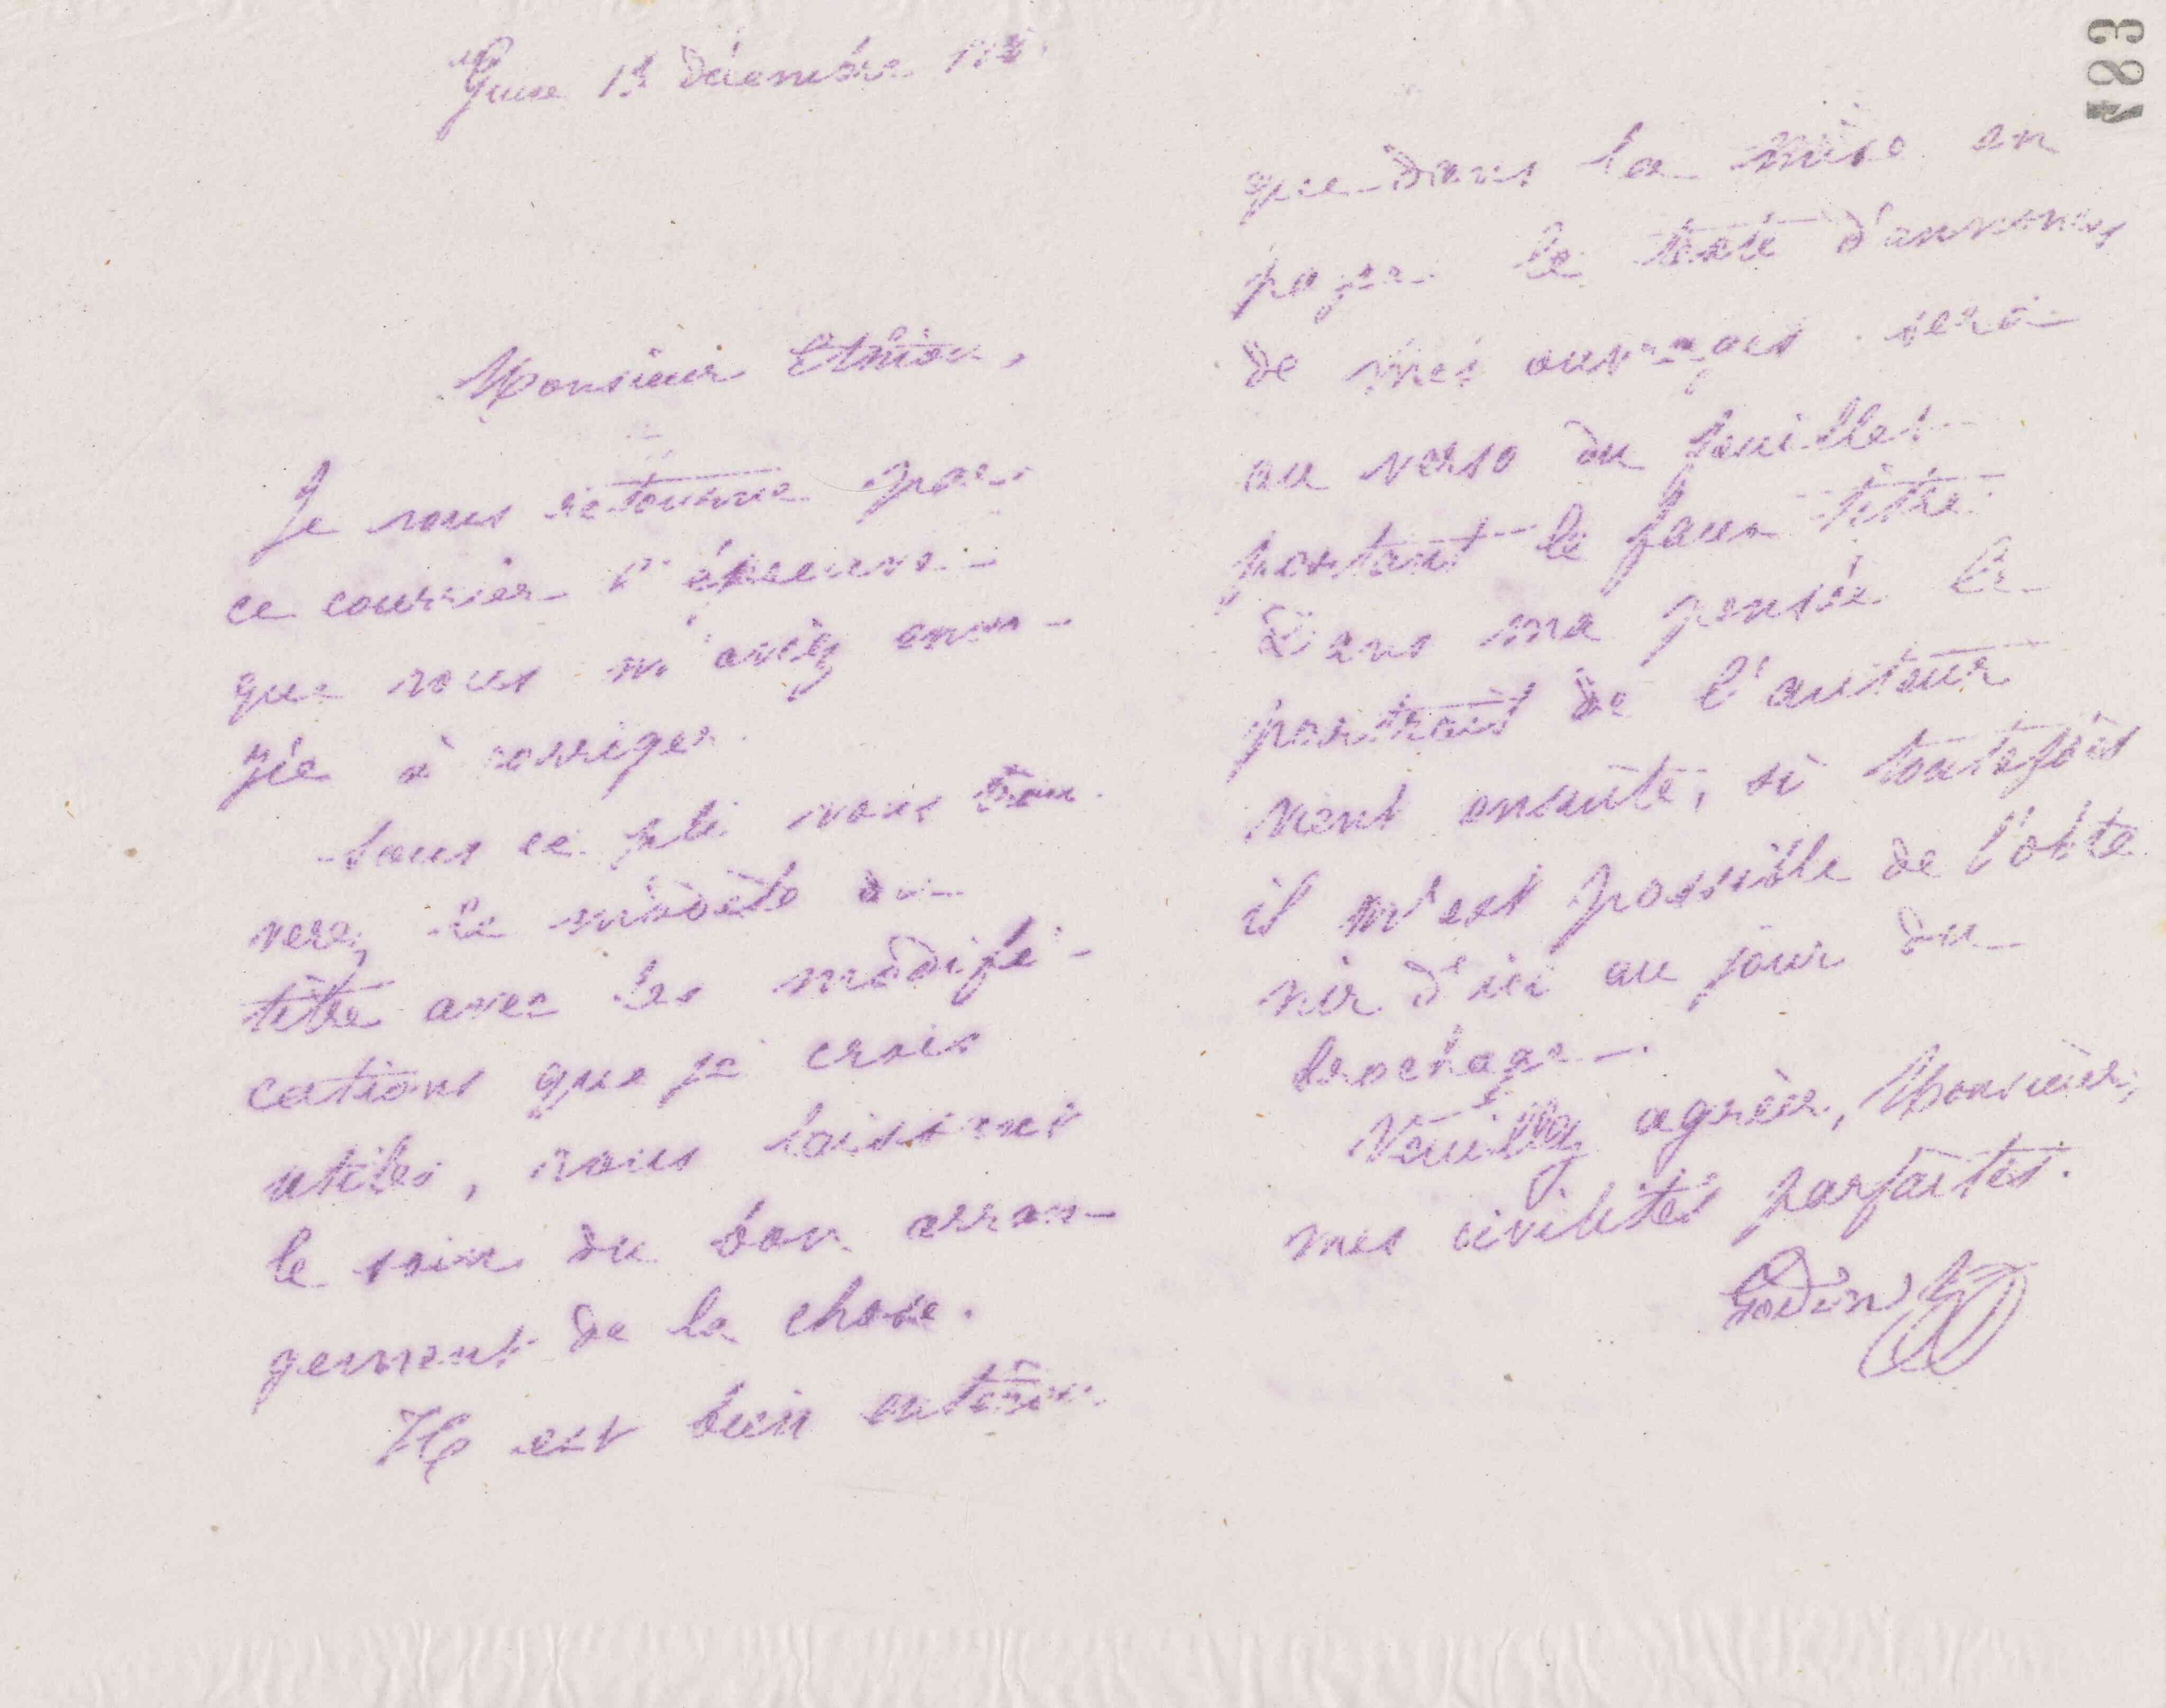 Guise 1er décembre
Monsieur Ethiou,
Je vous retourne par
ce courrier l'épreuve
que vous m'aviez envo-
yée à corriger.
Sous ce pli vous trou-
verez le modèle du
titre avec les modifi-
cations que je crois
utiles, vous laissant
le soin du bon arran-
gement de la chose.
Il est bien entendu
que dans la mise en
pages le texte d'annonces
de mes ouvrages sera
au verso du feuillet
portant le faux titre.
Dans ma pensée le
portrait de l'auteur
vient ensuite, si toutefois
il m'est possible de l'obte
nir d'ici au jour du
brochage.
Veuillez agréer, Monsieur,
mes civilités parfaites.
Godin
183